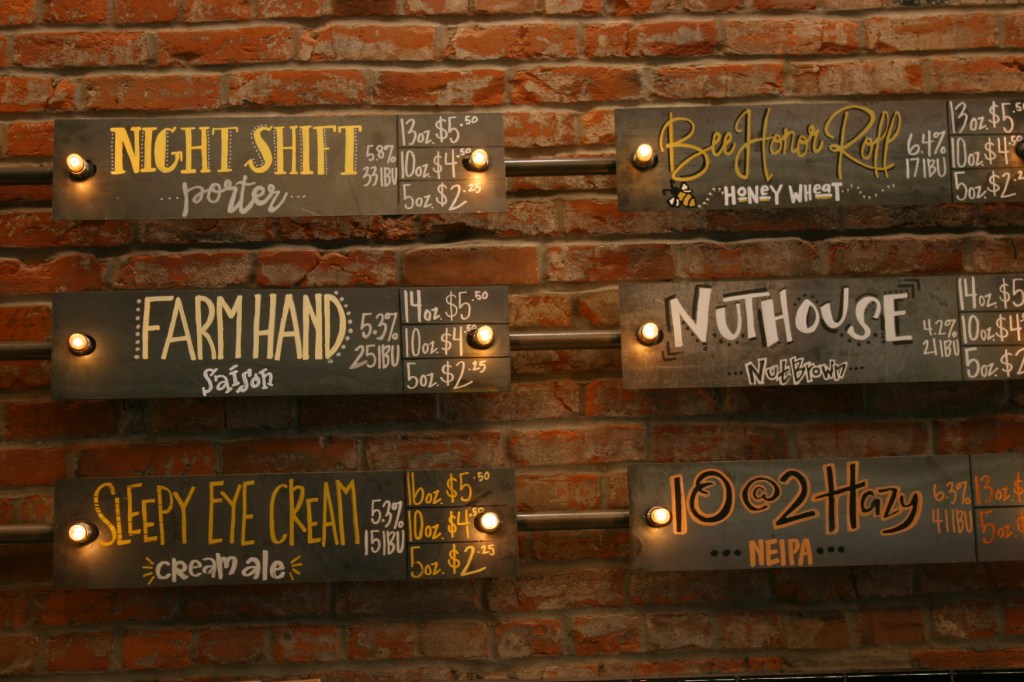 NIGHT SHIFT
porter
5.8%
33IBU
13oz. $5.50
10oz. $4.50
5oz. $2.25
Bee Honor Roll
HONEY WHEAT
6.4%
17IBU
13oz. $5.50
10oz. $4.
5oz. $2.
FARM HAND
saison
5.3%
25IBU
14oz. $5.50
10oz. $4.
5oz. $2.25
NUTHOUSE
NutBrown
4.2%
21IBU
14oz. $5
10oz. $4
5oz. $2
SLEEPY EYE CREAM
cream ale
5.3%
15IBU
16oz. $5.50
10oz. $4.50
5oz. $2.25
10@2 Hazy
NEIPA
6.3%
41IBU
13oz. $
5oz. $